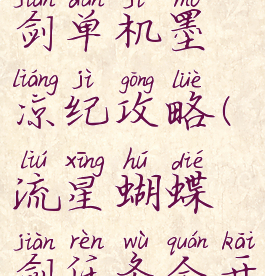 jiàn dān jī mò
剑单机墨
liáng jì gōng lüè
凉纪攻略(
liú xīng hú dié
流星蝴蝶
jiàn rèn wù quán kāi
剑任务全开